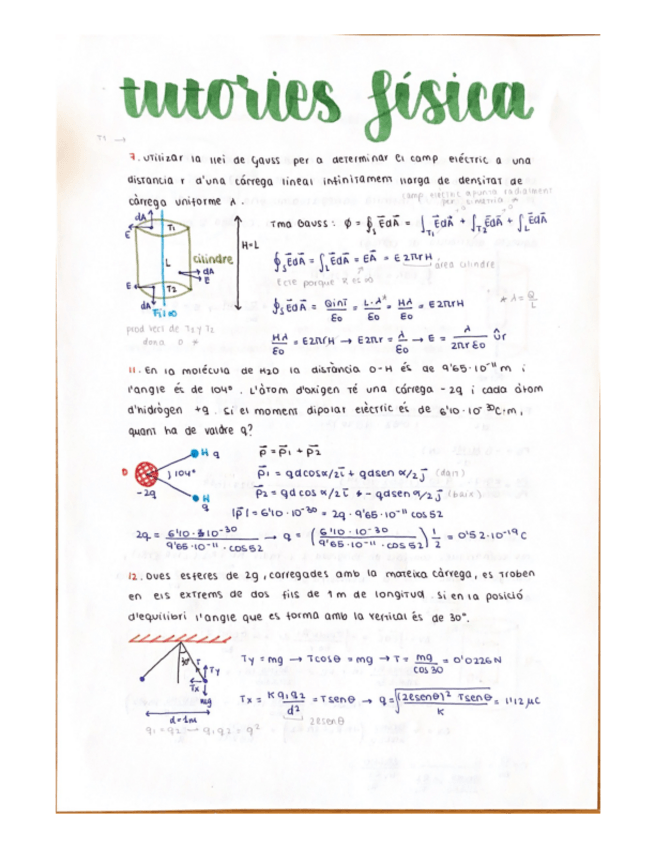 tutories física
7. Utilitzar la llei de Gauss per a determinar el camp elèctric a una
distància r d'una càrrega lineal infinitament llarga de densitat de
càrrega uniforme λ.
camp elèctric apunta radialment
per simetria
dA
E
T1
L
cilindre
dA
E
E
T2
dA
H=L
prod vect de T1 y T2
dona 0
Tma Gauss: ϕ = ∮s E dA = ∫T1 E dA + ∫T2 E dA + ∫L E dA
∮s E dA = ∫L E dA = EA = E 2πrH
àrea cilindre
Ecte porque
∮s E dA = Qint/εo = L·λ/εo = Hλ/εo = E2πrH
* λ = Q/L
Hλ/εo = E2πrH → E2πr = λ/εo → E = λ/2πrεo ûr
11. En la molècula de H2O la distància O-H és de 9'65·10⁻¹¹ m i
l'angle és de 104°. L'àtom d'oxigen té una càrrega -2q i cada àtom
d'hidrògen +q. Si el moment dipolar elèctric és de 6'10·10⁻³⁰ C·m,
quant ha de valdre q?
O
-2q
H q
104°
H
q
p = p1 + p2
p1 = qdcosα/2 i + qdsen α/2 j (dalt)
p2 = qd cos α/2 i + - qdsen α/2 j (baix)
|p| = 6'10·10⁻³⁰ = 2q · 9'65·10⁻¹¹ cos 52
2q = 6'10·10⁻³⁰/9'65·10⁻¹¹·cos52 → q = (6'10·10⁻³⁰/9'65·10⁻¹¹·cos52) 1/2 = 0'52·10⁻¹⁹ C
12. Dues esferes de 2g, carregades amb la mateixa càrrega, es troben
en els extrems de dos fils de 1m de longitud. Si en la posició
d'equilibri l'angle que es forma amb la vertical és de 30°.
30°
T
Ty
Tx
mg
d=1m
q1 = q2 → q1q2 = q²
Ty = mg → Tcosθ = mg → T = mg/cos 30 = 0'0226N
Tx = K q1q2/d² = Tsenθ → q = √((2ℓsenθ)² Tsenθ/K) = 1'12 μC
2ℓsenθ